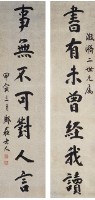 書有未曾經我讀
二世兄屬
事無不可對人言
甲寅三月